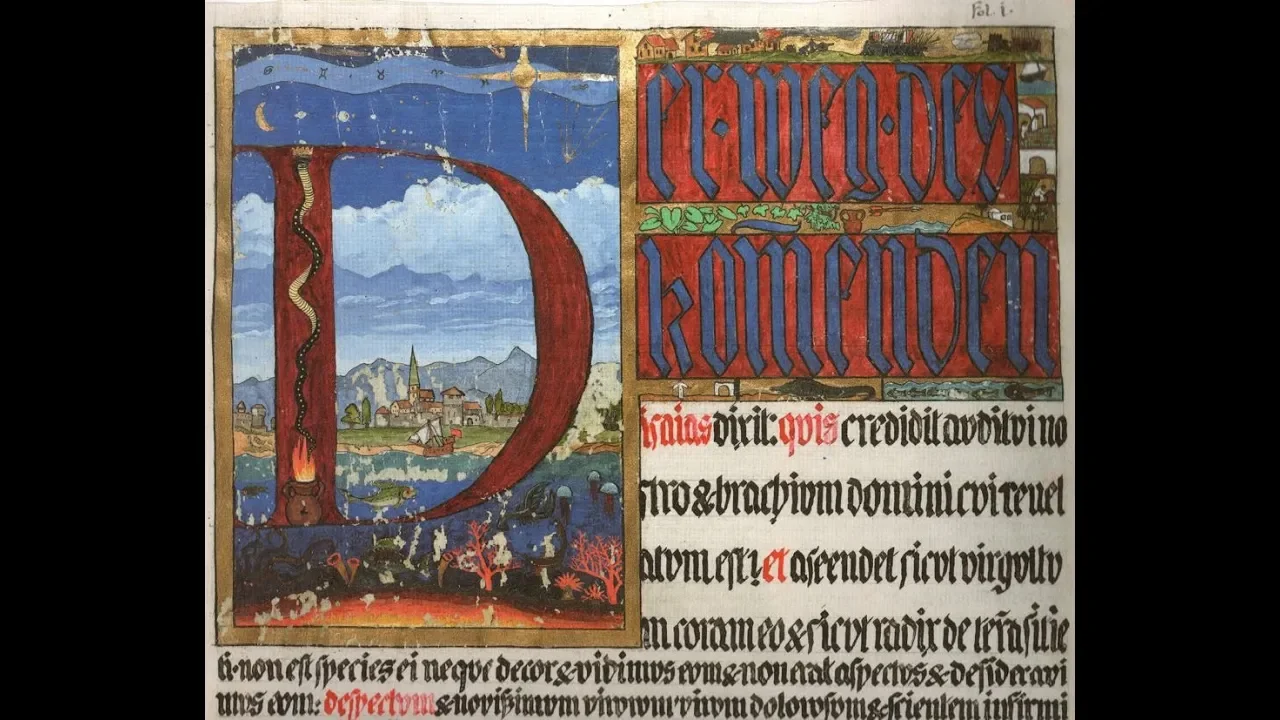 fol. i.
Der · weg · des
komenden
isaias dixit: qvis credidit avditvi no
stro & brachivm domini cvi revel
atvm est? et ascendet sicvt virgvltv
m coram eo & sicvt radix de terra sitie
ti · non est species ei neqve decor & vidimvs evm & non erat aspectvs & desideravi
mvs evm: despectvm & novissimvm virorvm virvm dolorvm & scientem infirmi